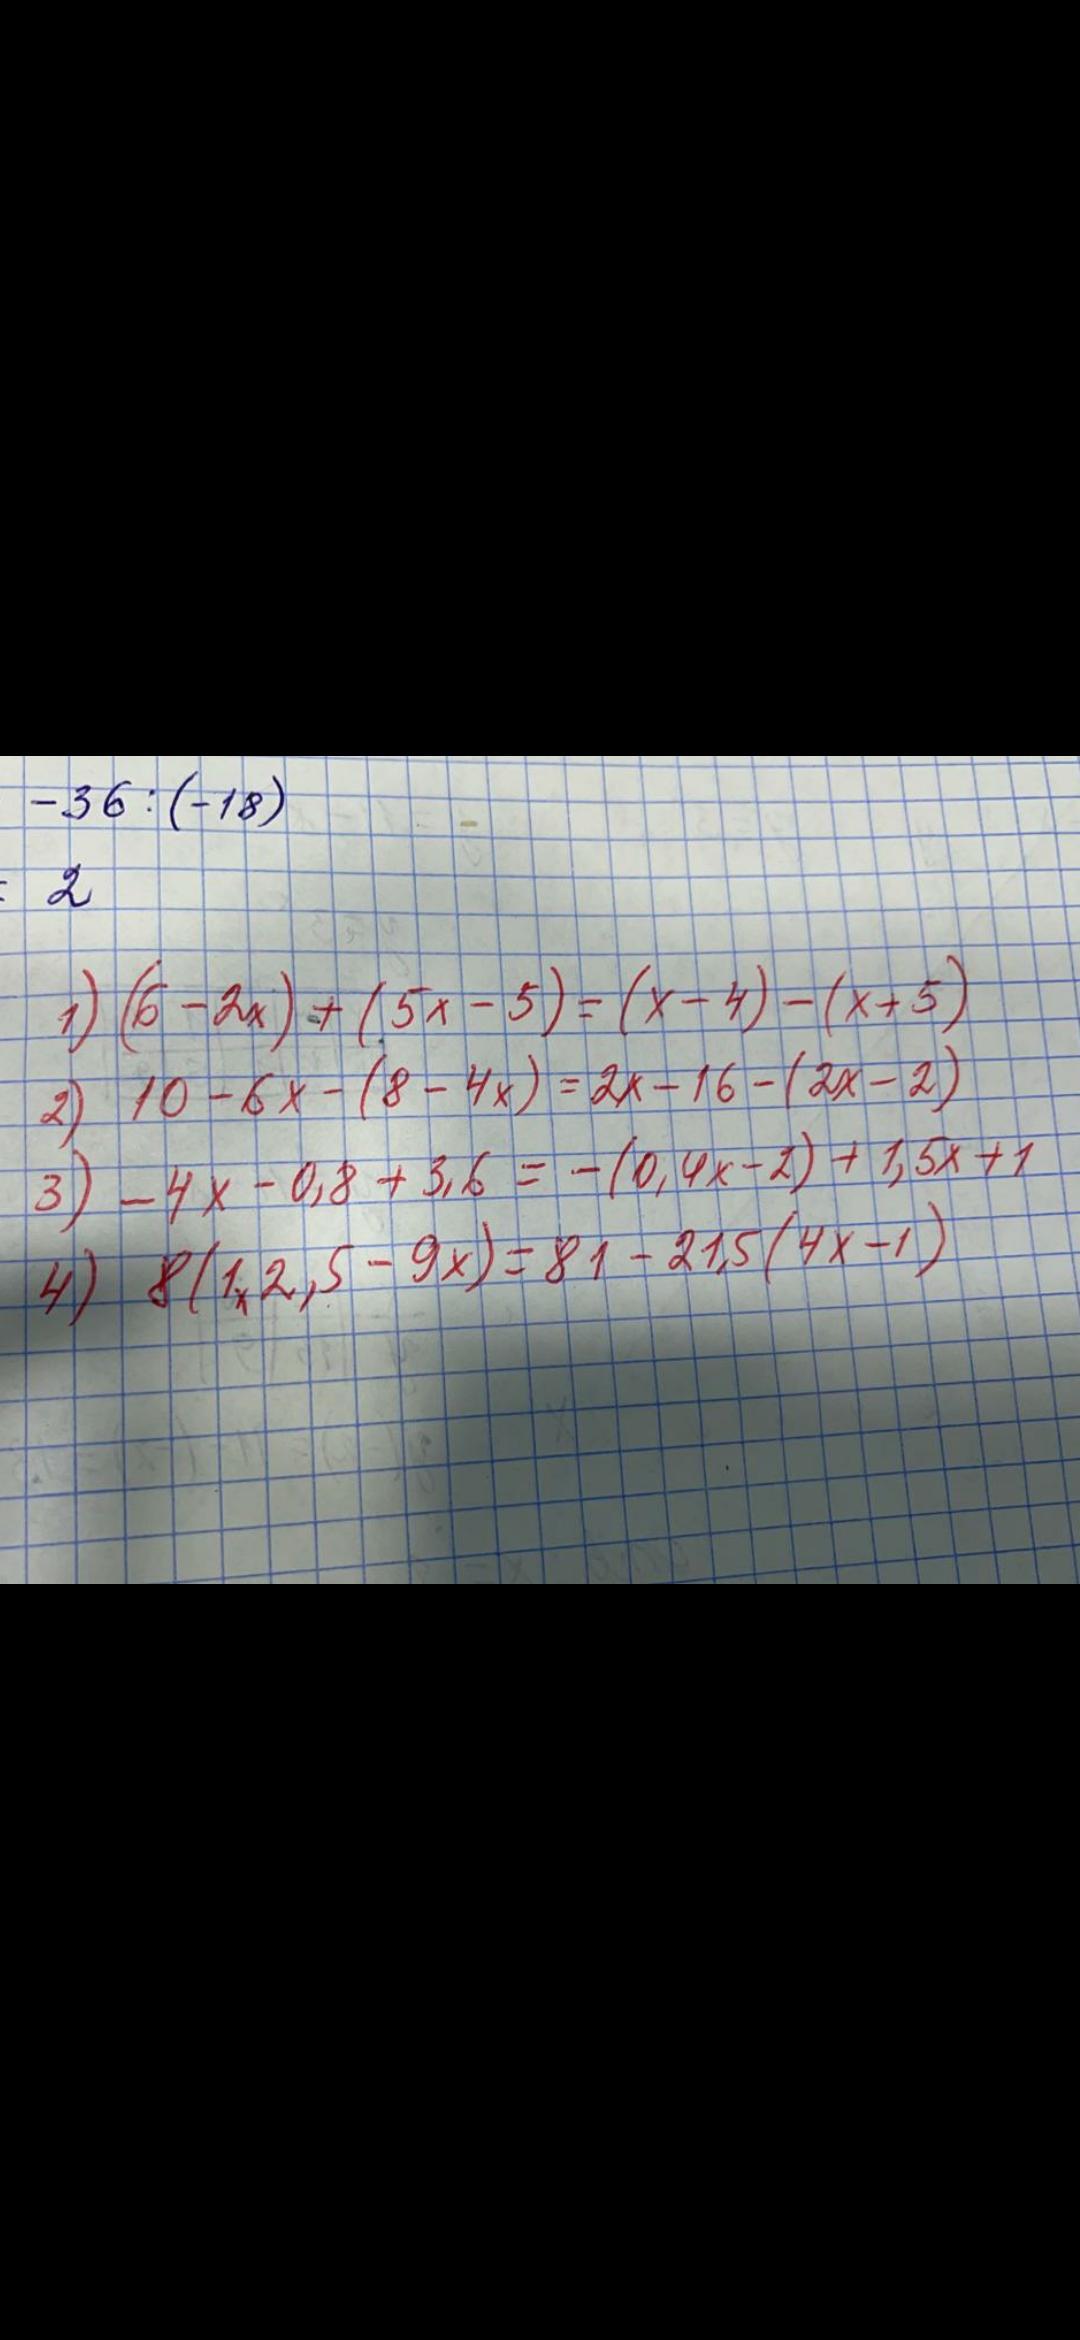 -36:(-18)
= 2
1) (6-2x)+(5x-5)=(x-4)-(x+5)
2) 10-6x-(8-4x)=2x-16-(2x-2)
3) -4x-0,8+3,6=-(0,4x-2)+1,5x+1
4) 8(1x2,5-9x)=81-21,5(4x-1)